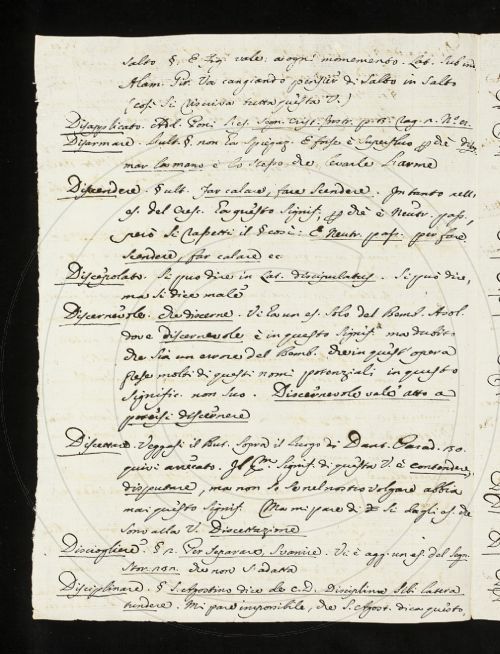 salto §. E fig. vale, a ogni momemento. Lat. subin
Alam. Gir. Va cangiando pensier di salto in salto
(così si riscriva tutta questa V.)
Disapplicato. Pros. p. 15. Rag. 1. N.º
Disarmare. §ult. §. non la spiegaz. E forse è superfluo che
mar la mano è lo stesso che levarle l'arme
Discendere. §ult. Far calare, fare scendere. In tanto nell'
es. del Cresc. ha questo signif., è Neutr. pass.,
però si rassetti il § così: E Neutr. pass. per fare
scendere, far calare ec
Discepolato. Si può dire in Lat. discipulatus. Si può dire,
ma si dice male
Discernevole. che discerne. Vi ha un es. solo del Bemb. Asol.
dove discernevole è in questo signif. ma dubito
che sia un errore del Bemb. che in quest'opera
molti di questi nomi potenziali in questo
signific. non suo. Discernevole vale atto a
potersi discernere
Discettare. Veggasi il But. sopra il luogo di Dant. Parad. 30.
quivi arrecato. Il signif. di questa V. è contendere,
disputare, ma non so se nel nostro volgare abbia
mai questo signif. Ma mi pare di sì dagli es. che
sono alla V. Discettazione
Disciogliere. § 2. Per Separare, Svanire. Vi è agg. un es. del Segn.
Stor. che non s'adatta
Disciplinare. § S. Agostino dice de C.D. Disciplina sibi latera
tundere. Mi pare impossibile, che S. Agost. dica questo,